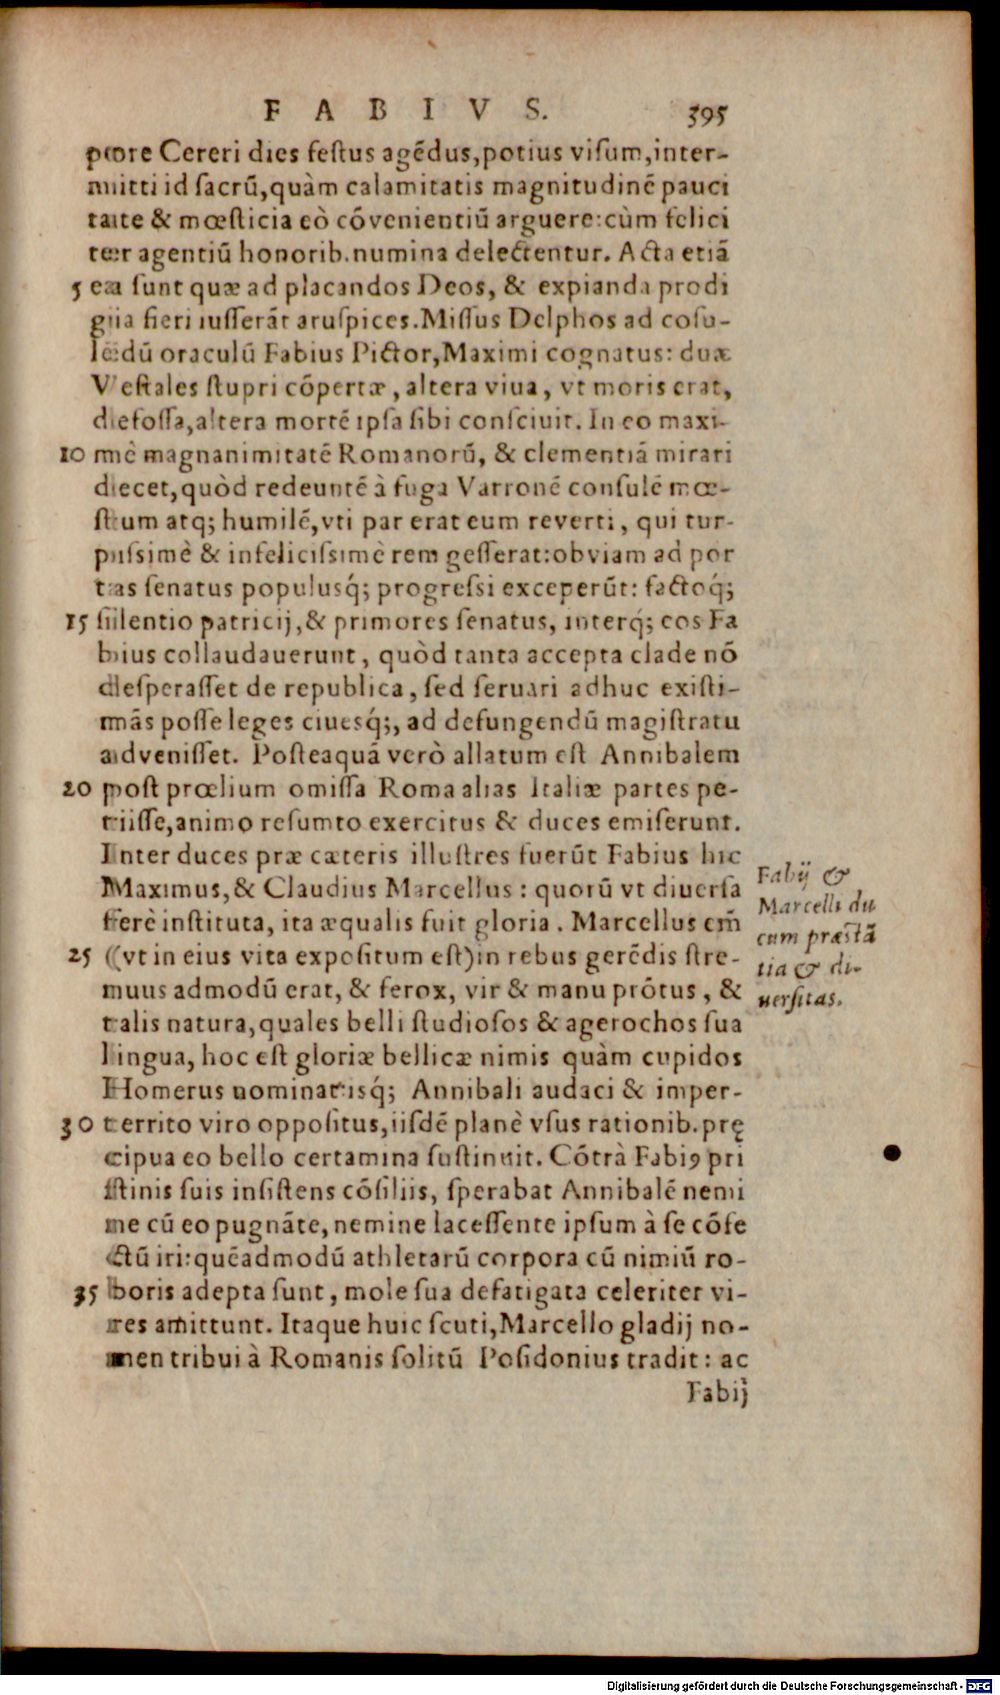 FABIVS. 395
pore Cereri dies festus agẽdus, potius visum, inter-
mitti id sacrũ, quàm calamitatis magnitudinẽ pauci
tate & mœsticia eò cõvenientiũ arguere: cùm felici
ter agentiũ honorib. numina delectentur. Acta etiã
5 ea sunt quæ ad placandos Deos, & expianda prodi
gia fieri iusserãt aruspices. Missus Delphos ad cõsu-
lẽdũ oraculũ Fabius Pictor, Maximi cognatus: duæ
Vestales stupri cõpertæ, altera viua, vt moris erat,
defossa, altera mortẽ ipsa sibi consciuit. In eo maxi-
10 mè magnanimitatẽ Romanorũ, & clementiã mirari
decet, quòd redeuntẽ à fuga Varronẽ consulẽ mœ-
stum atq; humilẽ, vti par erat eum reverti, qui tur-
pissimè & infelicissimè rem gesserat: obviam ad por
tas senatus populusq́; progressi exceperũt: factoq́;
15 silentio patricij, & primores senatus, interq́; eos Fa
bius collaudauerunt, quòd tanta accepta clade nõ
desperasset de republica, sed seruari adhuc existi-
mãs posse leges ciuesq́;, ad defungendũ magistratu
advenisset. Posteaquã verò allatum est Annibalem
20 post prœlium omissa Roma alias Italiæ partes pe-
tiisse, animo resumto exercitus & duces emiserunt.
Inter duces præ cæteris illustres fuerũt Fabius hic
Maximus, & Claudius Marcellus: quorũ vt diuersa
ferè instituta, ita æqualis fuit gloria. Marcellus em̃
25 (vt in eius vita expositum est) in rebus gerẽdis stre-
nuus admodũ erat, & ferox, vir & manu prõtus, &
talis natura, quales belli studiosos & agerochos sua
lingua, hoc est gloriæ bellicæ nimis quàm cupidos
Homerus nominat: isq́; Annibali audaci & imper-
30 territo viro oppositus, iisdẽ planè vsus rationib. prę
cipua eo bello certamina sustinuit. Cõtrà Fabiꝰ pri
stinis suis insistens cõsiliis, sperabat Annibalẽ nemi
ne cũ eo pugnãte, nemine lacessente ipsum à se cõfe
ctũ iri: quẽadmodũ athletarũ corpora cũ nimiũ ro-
35 boris adepta sunt, mole sua defatigata celeriter vi-
res amittunt. Itaque huic scuti, Marcello gladij no-
men tribui à Romanis solitũ Posidonius tradit: ac
Fabij
Fabij &
Marcelli du
cum præstã
tia & di-
uersitas.
Digitalisierung gefördert durch die Deutsche Forschungsgemeinschaft - DFG